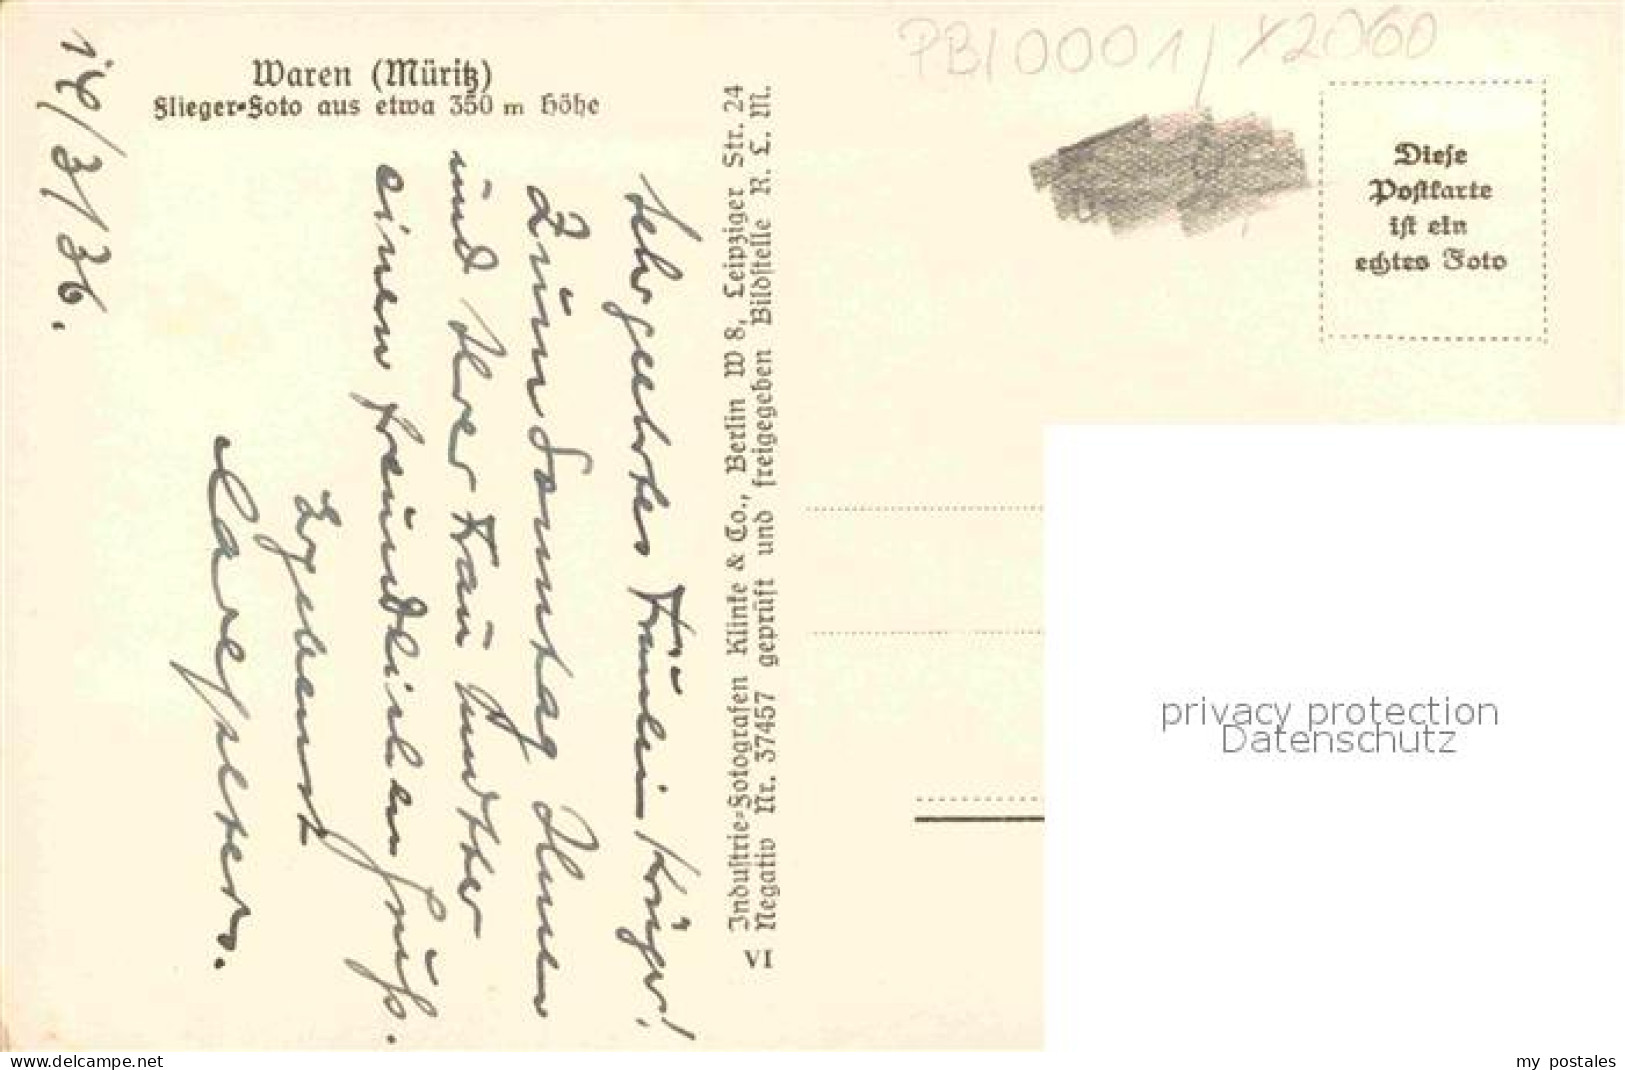 Waren (Müritz)
Flieger-Foto aus etwa 350 m Höhe
14/3/36.
Sehr geehrtes Fräulein Krüger!
Zum Sonntag Ihnen
und Ihrer Frau
einen freundlichen Gruß.
Ergebenst
Industrie-Fotografen Klinke & Co., Berlin W 8, Leipziger Str. 24
Negativ Nr. 37457 geprüft und freigegeben Bildstelle R. L. M.
VI
PB10001/X2060
Diese
Postkarte
ist ein
echtes Foto
privacy protection
Datenschutz
www.delcampe.net
my postales